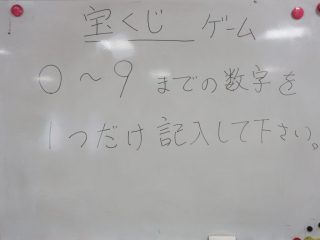 宝くじ ゲーム
0～9までの数字を
1つだけ記入して下さい。